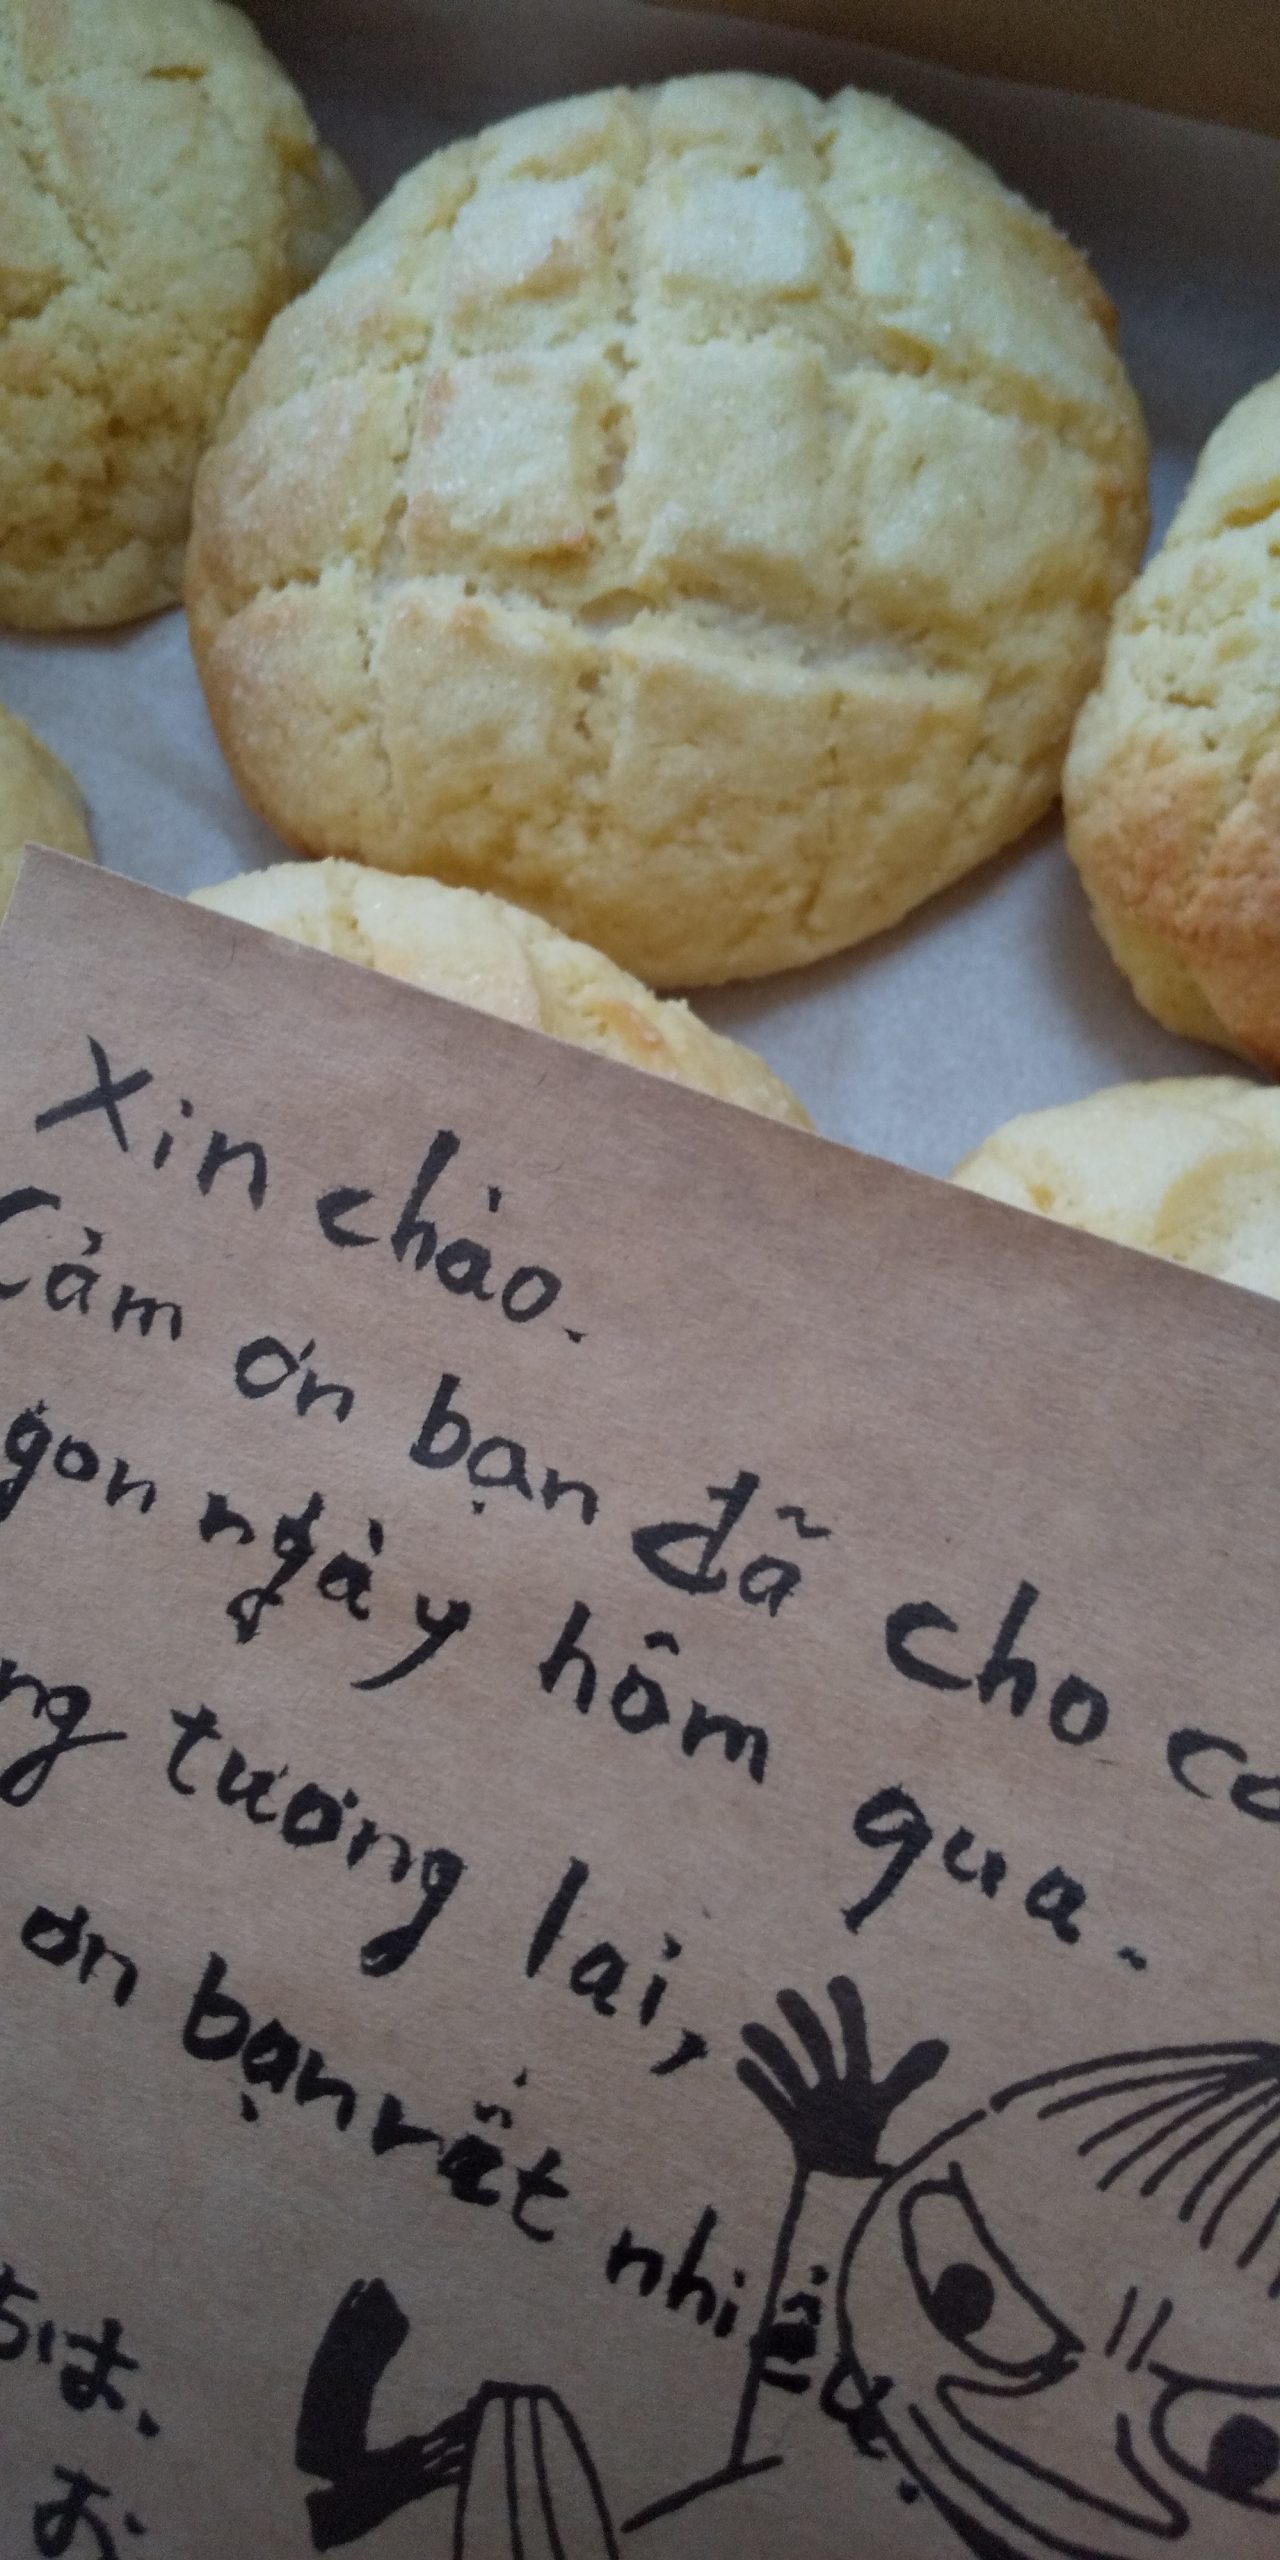 Xin chào.
Cảm ơn bạn đã cho
gon ngày hôm qua.
ng tương lai,
ơn bạn rất nhiều.
ちは、
お